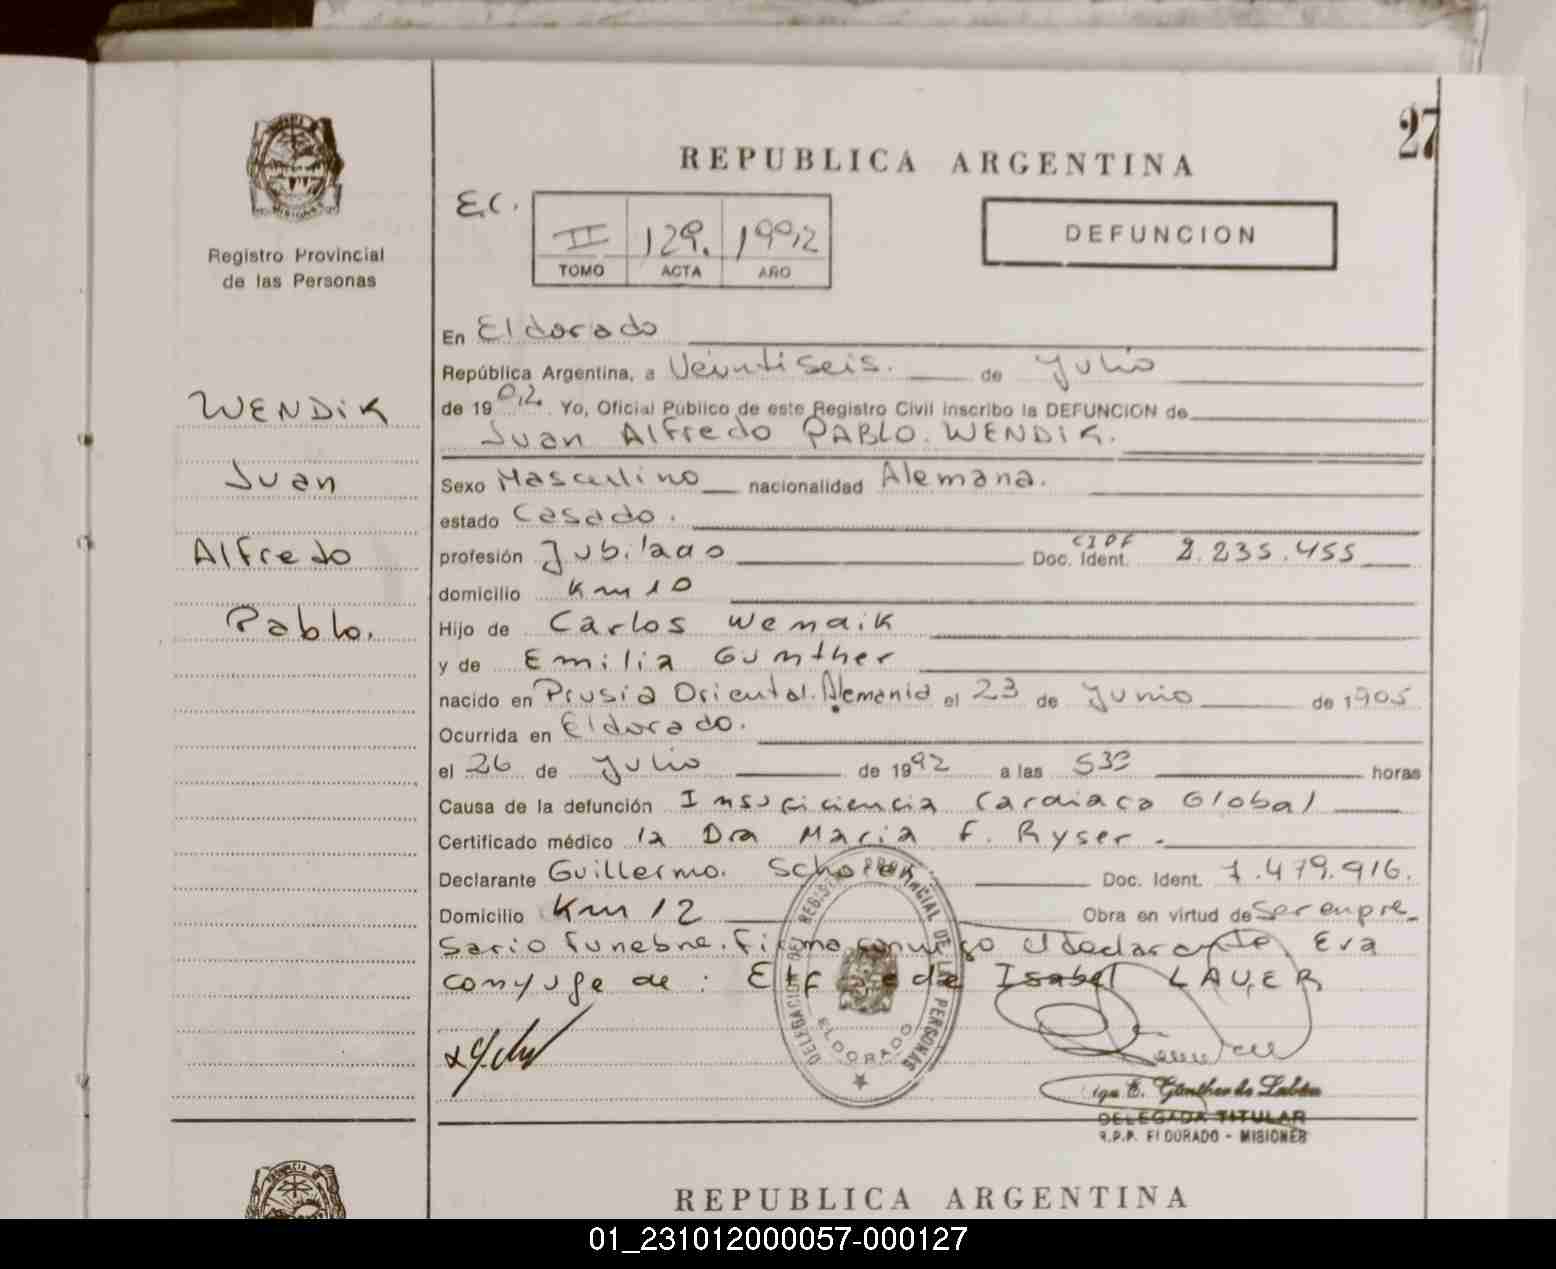 27
REPUBLICA ARGENTINA
E.C.
II 129. 1992
TOMO ACTA AÑO
DEFUNCION
Registro Provincial
de las Personas
WENDIK
Juan
Alfredo
Pablo.
En Eldorado
República Argentina, a Veintiseis. de Julio
de 1992. Yo, Oficial Público de este Registro Civil inscribo la DEFUNCION de
Juan Alfredo PABLO. WENDIK.
Sexo Masculino nacionalidad Alemana.
estado Casado.
profesión Jubilado Doc. Ident. 2.235.455
domicilio Km 10
Hijo de Carlos Wendik
y de Emilia Gunther
nacido en Prusia Oriental. Alemania el 23 de Junio de 1905
Ocurrida en Eldorado.
el 26 de Julio de 1992 a las 5 30 horas
Causa de la defunción Insuficiencia Cardiaca Global
Certificado médico la Dra Maria F. Ryser.
Declarante Guillermo. Doc. Ident. 1.479.916.
Domicilio Km 12 Obra en virtud de Ser empre-
sario funebre. Firma conmigo el declarante Era
conyuge de: Isabel LAUER
DELEGACION DEL REGISTRO PROVINCIAL DE LAS PERSONAS
ELDORADO
E. Günther de
DELEGADA TITULAR
R.P.P. ELDORADO - MISIONES
REPUBLICA ARGENTINA
01_231012000057-000127